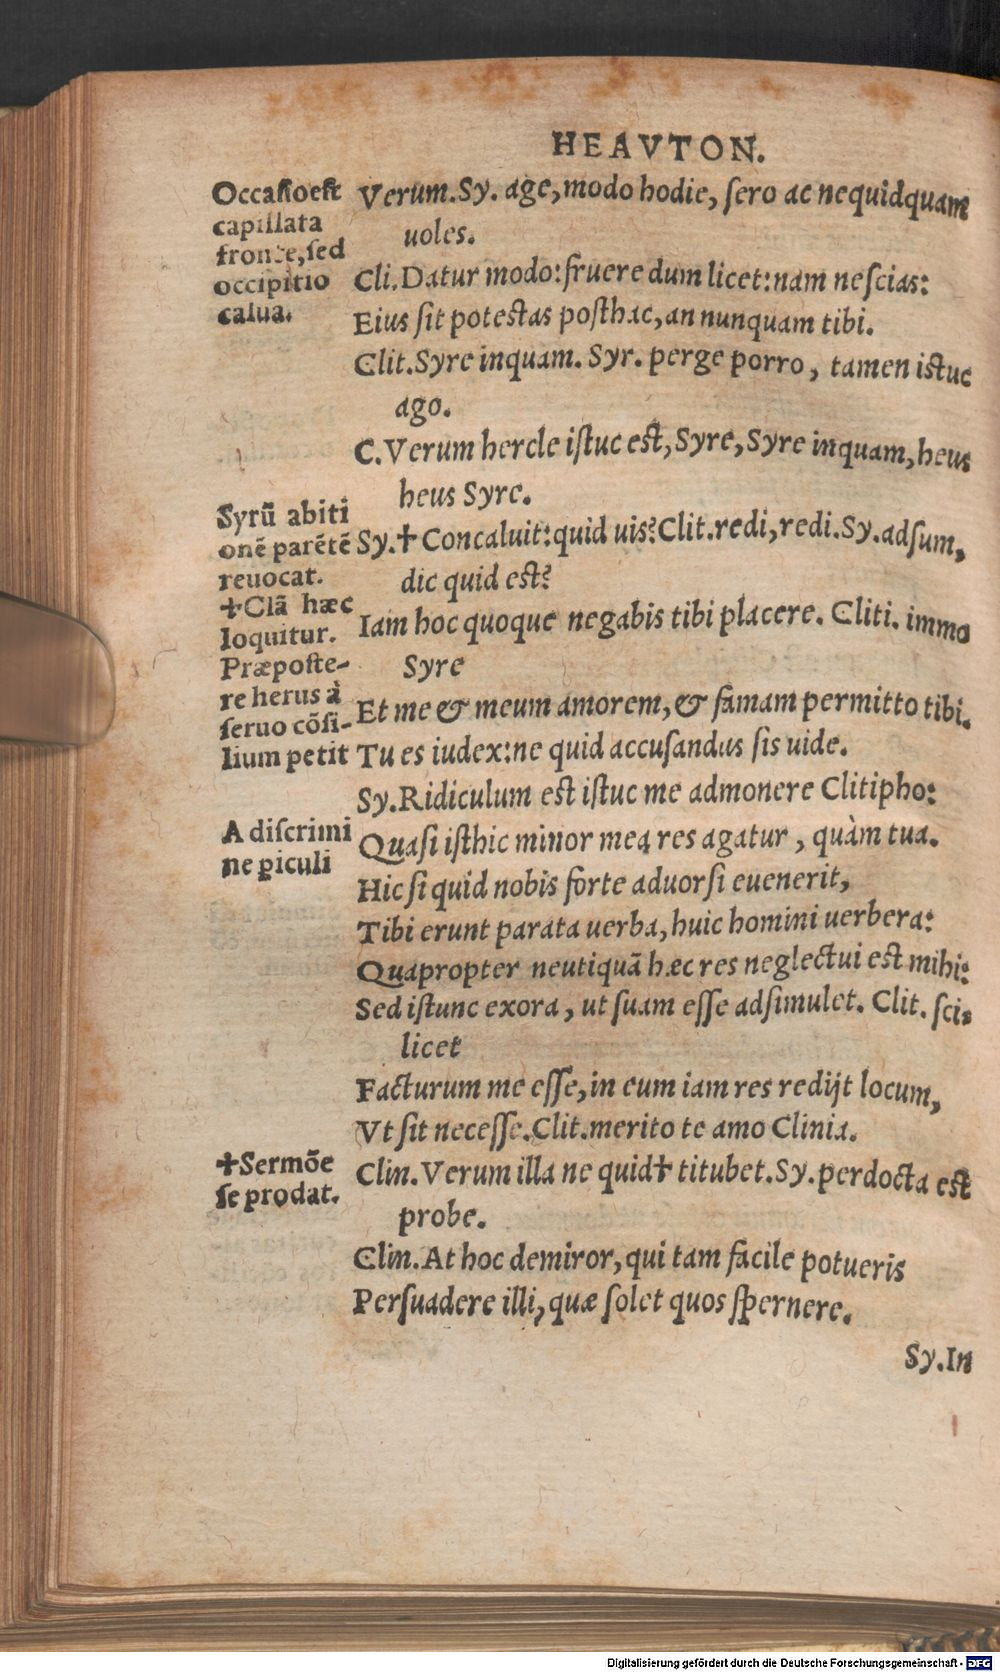 HEAVTON.
Occasio est
capillata
fronte, sed
occipitio
calua.
Verum. Sy. age, modo hodie, sero ac nequidquam
uoles.
Cli. Datur modo: fruere dum licet: nam nescias:
Eius sit potestas posthac, an nunquam tibi.
Clit. Syre inquam. Syr. perge porro, tamen istuc
ago.
C. Verum hercle istuc est, Syre, Syre inquam, heus
heus Syre.
Syrũ abiti
onẽ parẽtẽ
reuocat.
✝Clã hæc
loquitur.
Præposte-
re herus à
seruo cõsi-
lium petit
Sy. ✝ Concaluit: quid uis? Clit. redi, redi. Sy. adsum,
dic quid est?
Iam hoc quoque negabis tibi placere. Cliti. immo
Syre
Et me & meum amorem, & famam permitto tibi.
Tu es iudex: ne quid accusandus sis uide.
Sy. Ridiculum est istuc me admonere Clitipho:
A discrimi
ne ꝑiculi
Quasi isthic minor mea res agatur, quàm tua.
Hic si quid nobis forte aduorsi euenerit,
Tibi erunt parata uerba, huic homini uerbera:
Quapropter neutiquã hæc res neglectui est mihi:
Sed istunc exora, ut suam esse adsimulet. Clit. sci-
licet
Facturum me esse, in eum iam res redijt locum,
Vt sit necesse. Clit. merito te amo Clinia.
✝Sermõe
se prodat.
Clin. Verum illa ne quid ✝ titubet. Sy. perdocta est
probe.
Clin. At hoc demiror, qui tam facile potueris
Persuadere illi, quæ solet quos spernere.
Sy. In
Digitalisierung gefördert durch die Deutsche Forschungsgemeinschaft - DFG